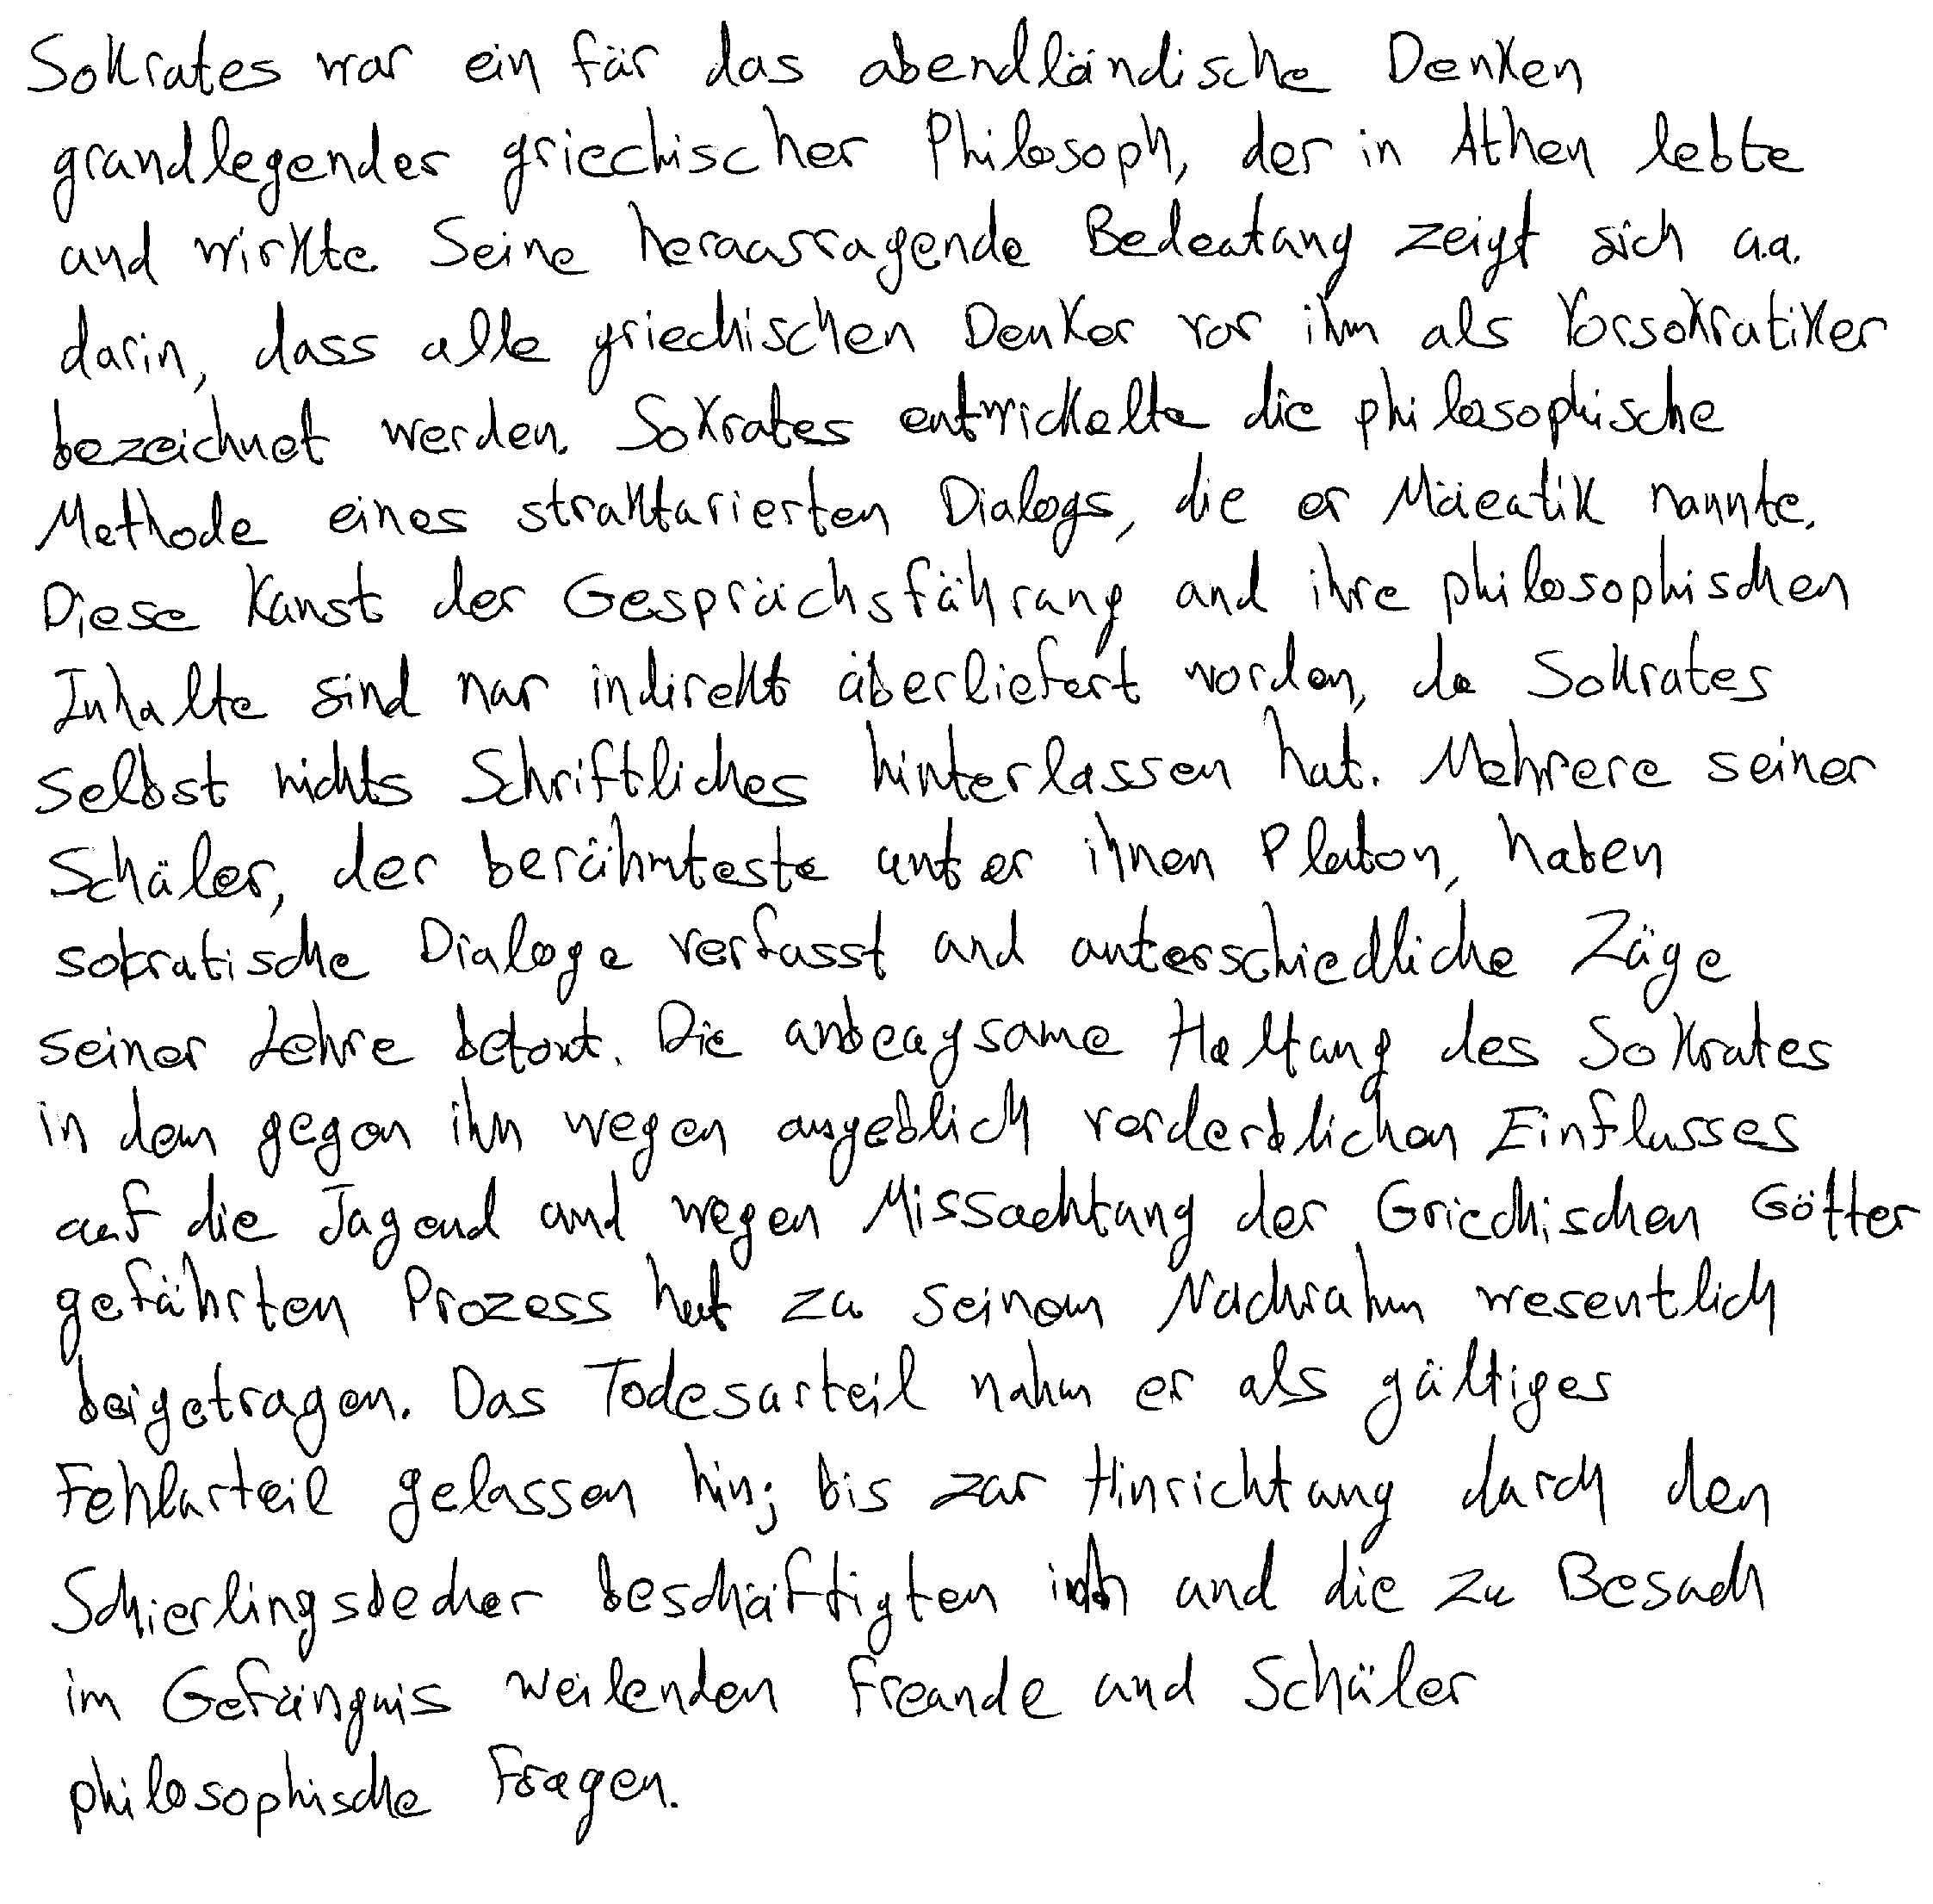 Sokrates war ein für das abendländische Denken
grundlegender griechischer Philosoph, der in Athen lebte
und wirkte. Seine herausragende Bedeutung zeigt sich u.a.
darin, dass alle griechischen Denker vor ihm als Vorsokratiker
bezeichnet werden. Sokrates entwickelte die philosophische
Methode eines strukturierten Dialogs, die er Mäeutik nannte.
Diese Kunst der Gesprächsführung und ihre philosophischen
Inhalte sind nur indirekt überliefert worden, da Sokrates
selbst nichts Schriftliches hinterlassen hat. Mehrere seiner
Schüler, der berühmteste unter ihnen Platon, haben
sokratische Dialoge verfasst und unterschiedliche Züge
seiner Lehre betont. Die unbeugsame Haltung des Sokrates
in dem gegen ihn wegen angeblich verderblichen Einflusses
auf die Jugend und wegen Missachtung der Griechischen Götter
geführten Prozess hat zu seinem Nachruhm wesentlich
beigetragen. Das Todesurteil nahm er als gültiges
Fehlurteil gelassen hin; bis zur Hinrichtung durch den
Schierlingsbecher beschäftigten ihn und die zu Besuch
im Gefängnis weilenden Freunde und Schüler
philosophische Fragen.